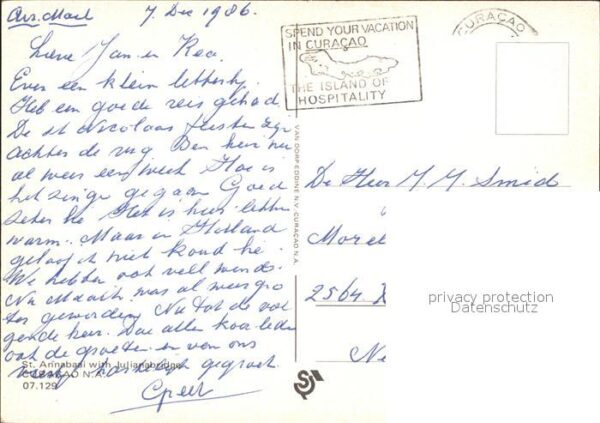 Air Mail
7 Dec 1986.
SPEND YOUR VACATION
IN CURAÇAO
THE ISLAND OF
HOSPITALITY
CURAÇAO
Lieve Jan en Rea.
Even een klein lettertje
Heb een goede reis gehad
De St Nicolaas feesten zijn
achter de rug Ben hier nu
al weer een week Hoe is
het zingen gegaan Goed
zeker he Het is hier lekker
warm. Maar in Holland
geloof ik niet koud he.
We hebben ook veel wind.
Nu was al weer
geworden Nu tot de vol
gende keer. Doe alle koorleden
ook de groeten en van ons
gegroet
Greet
VAN DORP-EDDINE N.V. CURAÇAO N.A.
De Heer M. M. Smid
2564
privacy protection
Datenschutz
St. Annabaai with Julianabridge
CURAÇAO N.A.
07.129